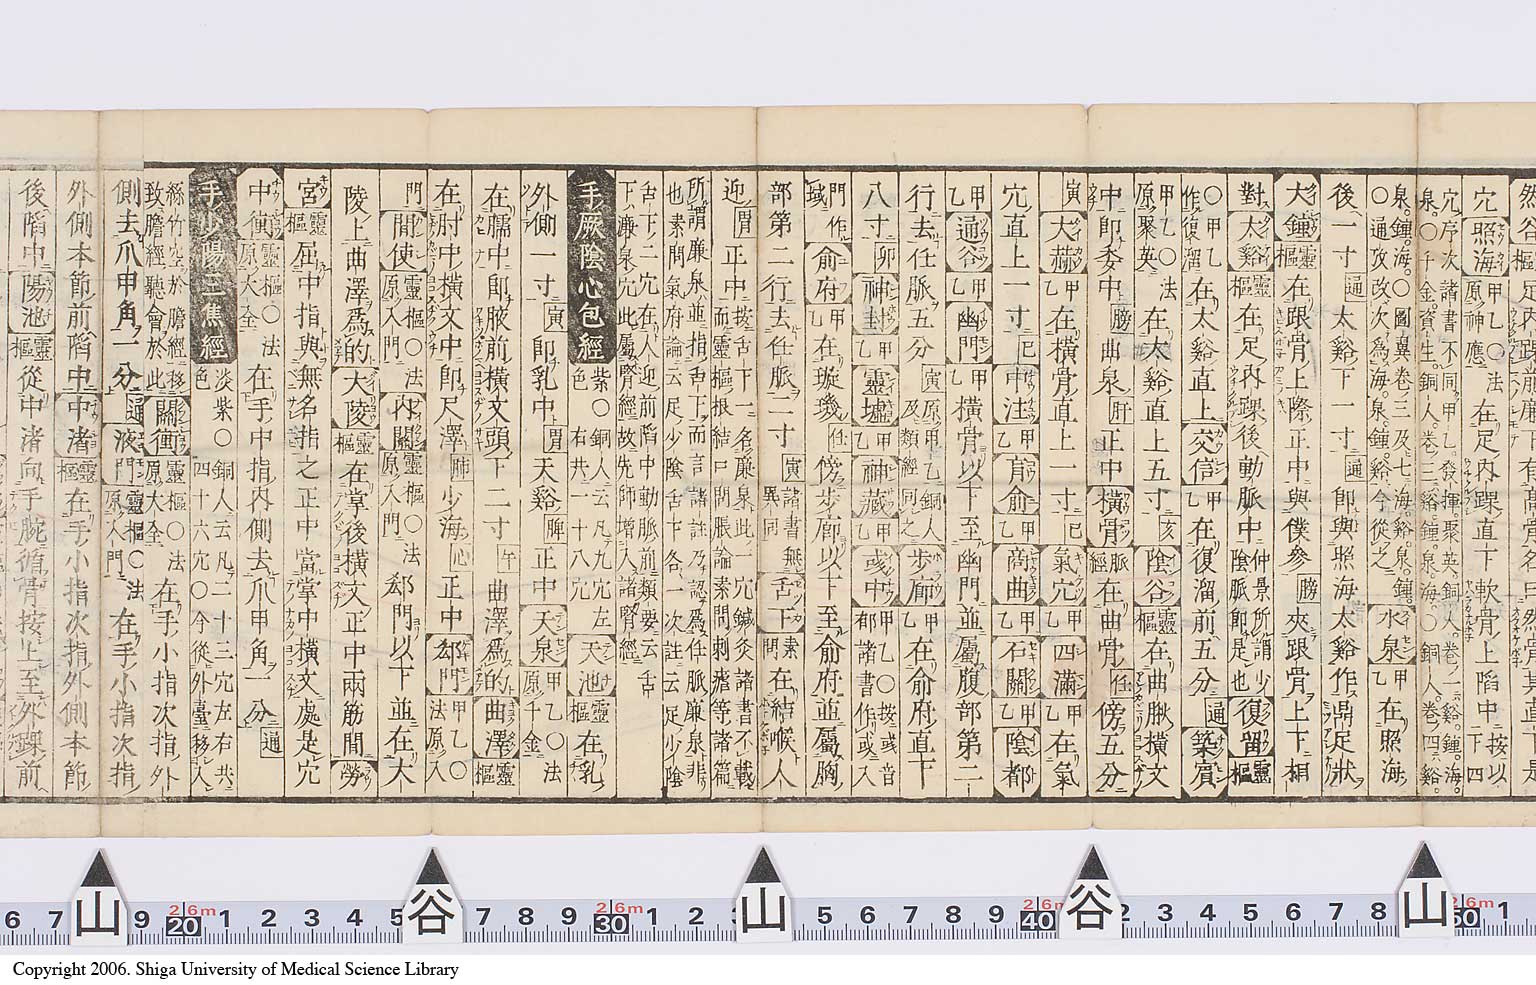 然谷 在足內踝前 有高骨名 然骨 其直下是
穴 照海 甲乙〇法 原神應 在足內踝直下軟骨上陷中 按以下四
穴序次諸書不同甲乙發揮聚英銅人卷一谿。鍾。海。
泉。〇千金。資生。銅人。卷三谿。鍾。泉。海。〇銅人。卷四谿。
泉。鍾。海。〇圖翼卷三及七海。谿。泉。鍾。
〇通攷改次為海。泉。鍾。谿今從之 水泉 甲乙 在照海
後一寸 通 太谿下一寸 通 即與照海太谿作鼎足狀
大鍾 靈樞 在跟骨上際正中與僕參 勝 夾跟骨上下相
對 太谿 靈樞 在足內踝後動脈中 仲景所謂少陰脈即是也 復留 靈樞
〇甲乙作復溜 在太谿直上 交信 甲乙 在復溜前五分 通 築賓
甲乙〇法原聚英 在太谿直上五寸 亥 陰谷 靈樞 在曲膕橫文
中即委中 勝 曲泉 肝 正中 橫骨 脈經 在曲骨 任 傍五分
寅 大赫 甲乙 在橫骨直上一寸 巳 氣穴 甲乙 四滿 甲乙 在氣
穴直上一寸 巳 中注 甲乙 肓俞 甲乙 商曲 甲乙 石關 甲乙 陰都
甲乙 通谷 甲乙 幽門 甲乙 橫骨以下至幽門並屬腹部第二
行去任脈五分 寅原甲乙銅人及類經同之 步廊 甲乙 在俞府直下
八寸 卯 神封 甲乙 靈墟 甲乙 神藏 甲乙 彧中 甲乙〇按彧音郁諸書作或入
門作域 俞府 甲乙 在璇璣 任 傍步廊以下至俞府並屬胸
部第二行去任脈二寸 寅諸書無異同 舌下 素問 在結喉人
迎 胃 正中 按舌下一名廉泉此一穴鍼灸諸書不載而靈樞根結口問脹論素問刺瘧等諸篇
所謂廉泉並指舌下而言諸註乃認為任脈廉泉非也素問氣府論云足少陰舌下各一次註云足少陰
舌下二穴在人迎前陷中動脈前類要云舌下廉泉穴此屬腎經故先師增入諸腎經
手厥陰心包經 紫色〇銅人云凡九穴左右共一十八穴 天池 靈樞 在乳
外側一寸 寅 即乳中 胃 天谿 脾 正中 天泉 甲乙〇法原千金
在臑中即腋前橫文頭下二寸 午 曲澤為的 曲澤 靈樞
在肘中橫文中即尺澤 肺 少海 心 正中 郄門 甲乙〇法原入
門 間使 靈樞〇法原入門 內關 靈樞〇法原入門 郄門以下並在大
陵上曲澤為的 大陵 靈樞 在掌後橫文正中兩筋間 勞
宮 靈樞 屈中指與無名指之正中當掌中橫文處是穴
中衝 靈樞〇法原大全 在手中指內側去爪甲角一分 通
手少陽三焦經 淡紫色〇銅人云凡二十三穴左右共四十六穴〇今後外臺移入
絲竹空於膽經移致膽經聽會於此 關衝 靈樞〇法原大全 在手小指次指外
側去爪甲角一分 通 液門 靈樞〇法原入門 在手小指次指
外側本節前陷中 中渚 靈樞 在手小指次指外側本節
後陷中 陽池 靈樞 從中渚向手腕循骨按上至外踝前
6 7 山 9 20 2.6m 1 2 3 4 5 谷 7 8 9 30 2.6m 1 2 3 山 5 6 7 8 9 40 2.6m 谷 2 3 4 5 6 7 8 山 50 2.6m 1
Copyright 2006. Shiga University of Medical Science Library